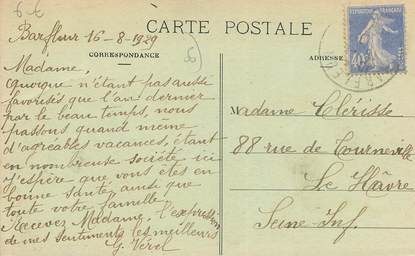 6 €
CARTE POSTALE
Barfleur 16-8-1929
CORRESPONDANCE
ADRESSE
Madame,
Quoique n'étant pas aussi
favorisés que l'an dernier
par le beau temps, nous
passons quand même
d'agréables vacances, étant
en nombreuse société ici
J'espère que vous êtes en
bonne santé ainsi que
toute votre famille.
Recevez Madame, l'expression
de mes sentiments les meilleurs
G. Vérel
Madame Clérisse
88 rue de Tourneville
Le Hâvre
Seine Inf.
POSTES
FRANÇAISE
40c